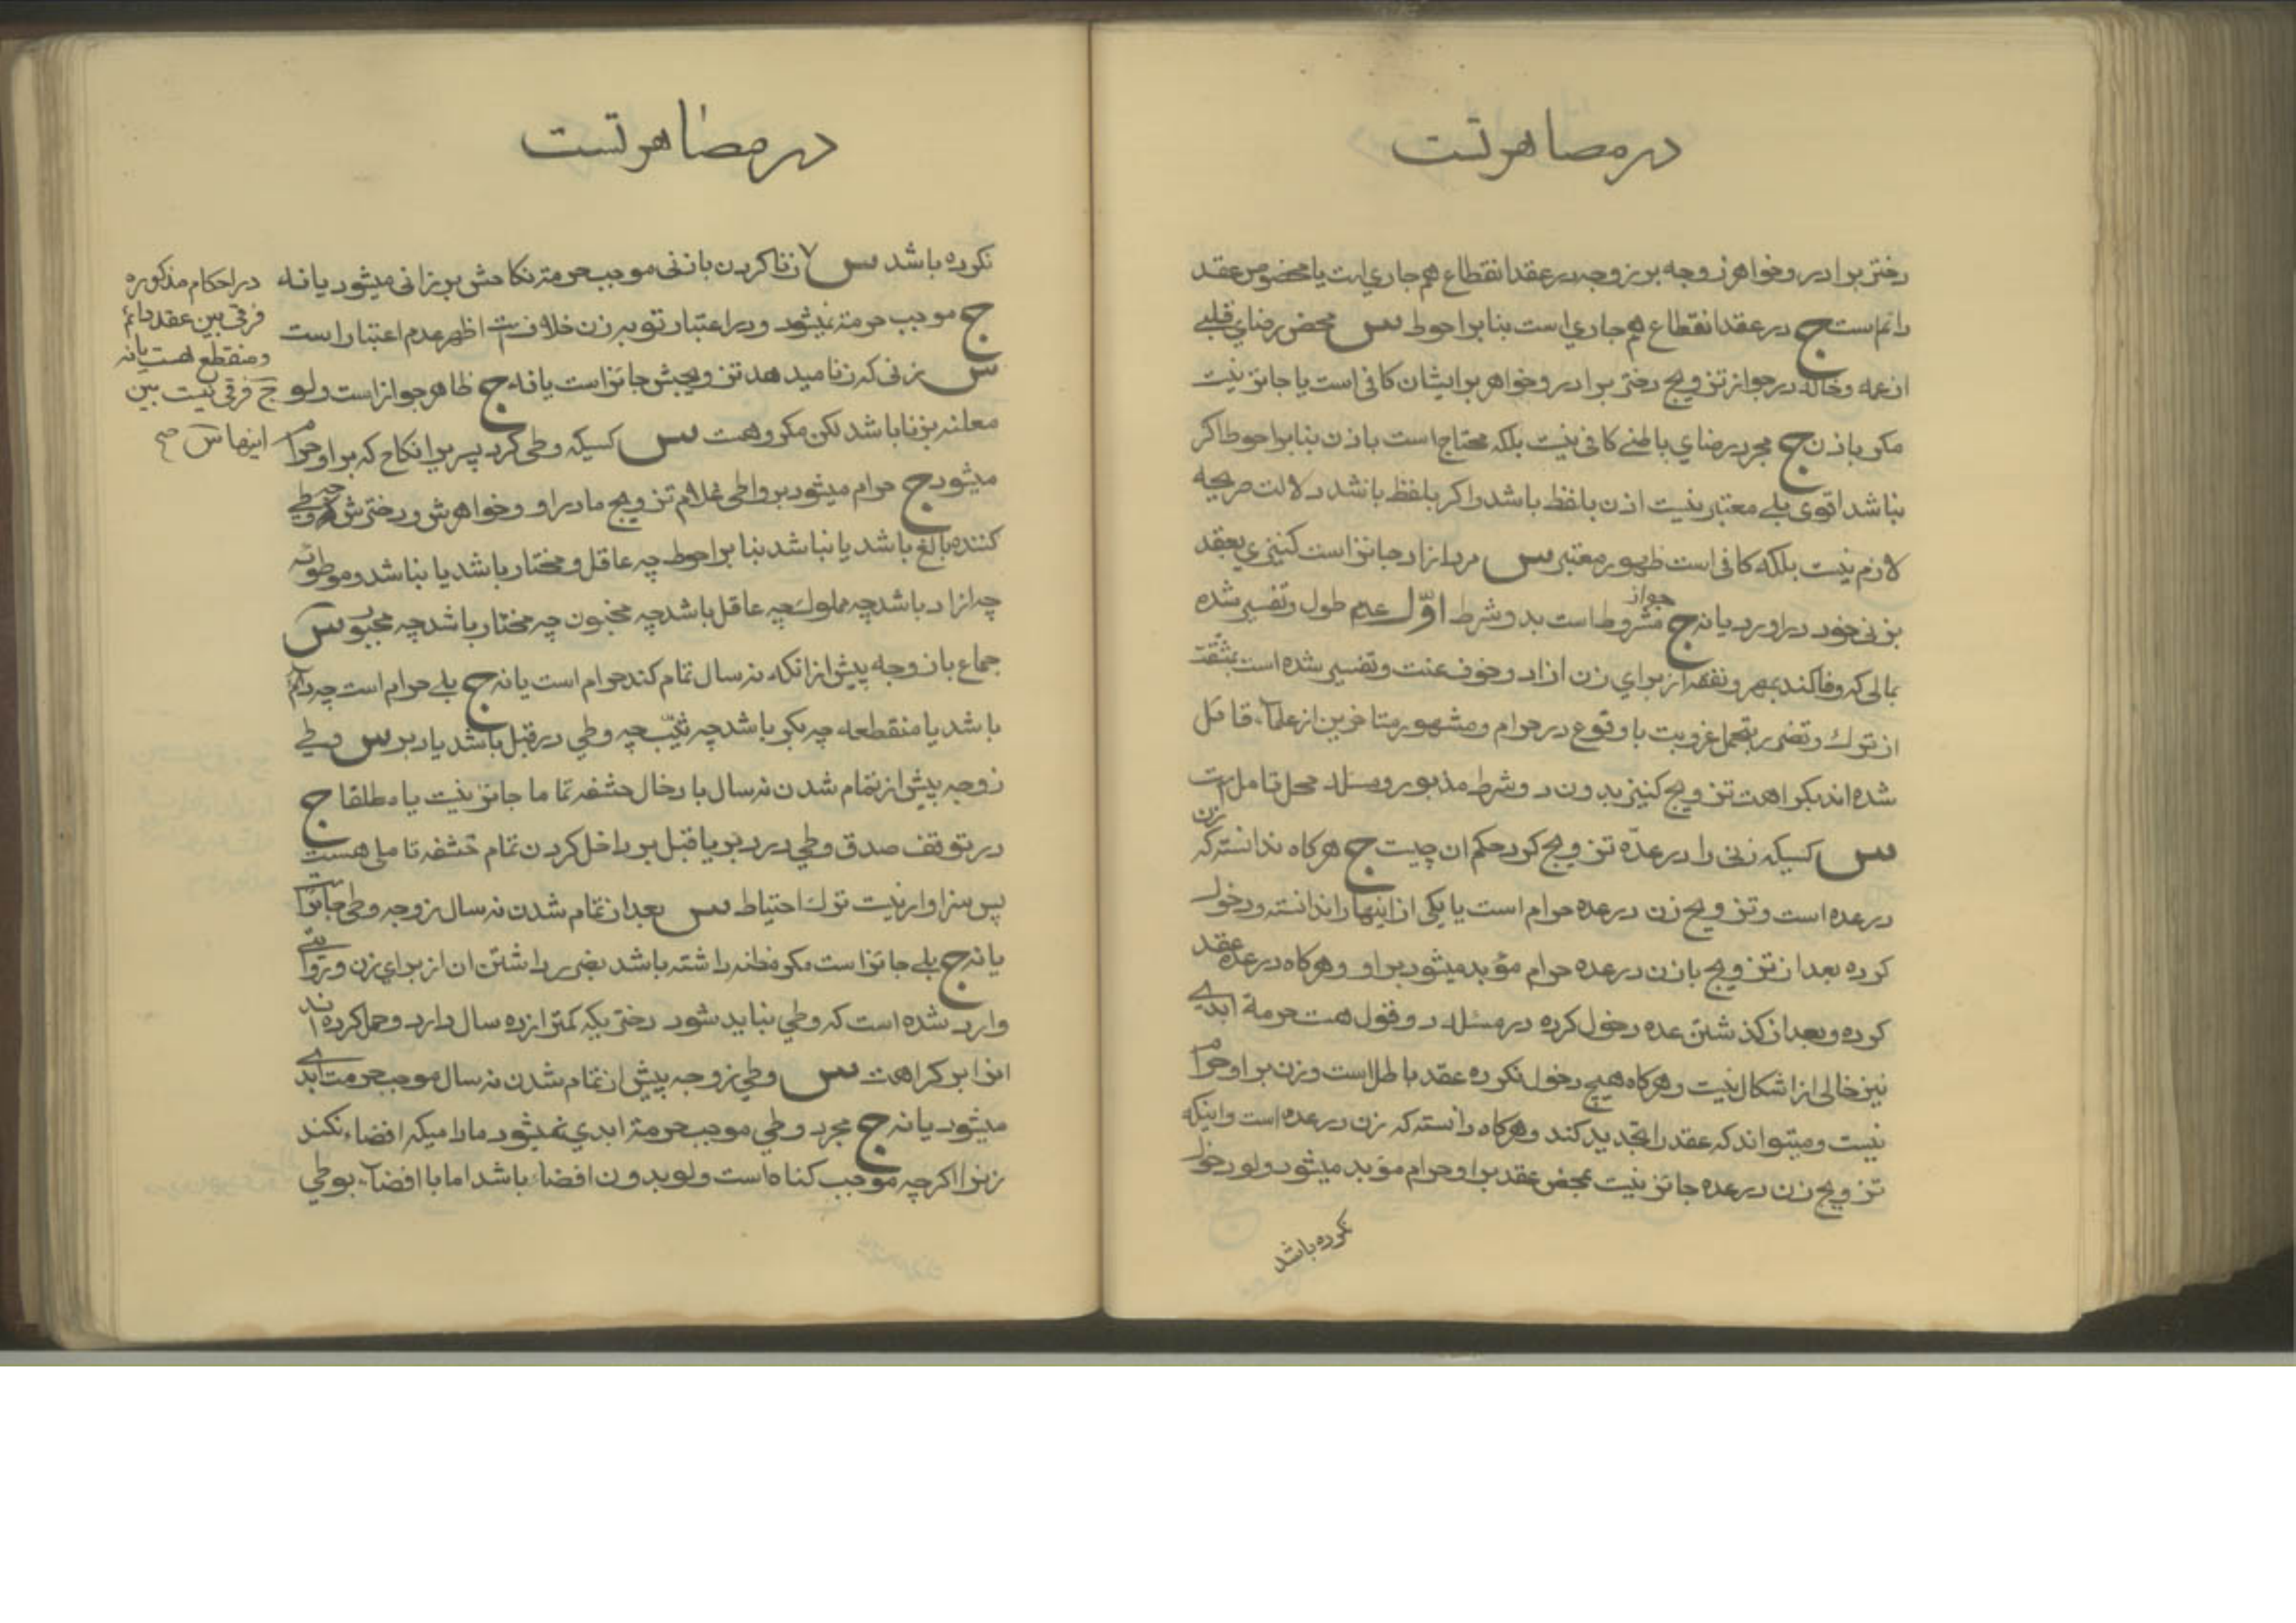 در مصاهرتست
دختر برادر و خواهر زوجه بر زوجه در عقد انقطاع هم جاري است یا مخصوص عقد
دائم است ج در عقد انقطاع هم جاري است بنا بر احوط س محض رضاي قلبے
از عمه و خاله در جواز تزویج دختر برادر و خواهر بر ایشان کافی است یا جائز نیست
مکر باذن ج مجرد رضاي باطنے کافی نیست بلکه محتاج است باذن بنا بر احوط اکر
نباشد اقوی بلے معتبر نیست اذن بلفظ باشد و اکر بلفظ باشد دلالت صریحه
لازم نیست بلکه کافی است ظهور معتبر س مرد ازاد جائز است کنیزي بعقد
بزنی خود در اورد یا نه ج جواز مشروط است بدو شرط اوّل عدم طول و تفسیر شده
بمالی که وفا کند بمهر و نفقه از براي زن ازاد و خوف عنت و تفسیر شده است بمشقت
از ترك و تضرر بتحمل عزوبت یا وقوع در حرام و مشهور متاخرین از علمآء قائل
شده اند بکراهت تزویج کنیز بدون دو شرط مذبور و مسئله محل تامل است
س کسیکه زنی را در عدّه تزویج کرد حکم ان چیست ج هرکاه ندانسته که زن
در عده است و تزویج زن در عده حرام است یا یکی از اینها را ندانسته و دخول
کرده بعد از تزویج بان زن در عده حرام مؤبد میشود بر او و هرکاه در عده عقد
کرده و بعد از کذشتن عده دخول کرده در مسئله دو قول هست حرمة ابدے
نیز خالی از اشکال نیست و هرکاه هیچ دخول نکرده عقد باطل است و زن بر او حرام
نیست و میتواند که عقد را تجدید کند و هرکاه دانسته که زن در عده است و اینکه
تزویج زن در عده جائز نیست بمحض عقد بر او حرام مؤبد میشود ولو دخول
نکرده باشد
در مصاهرتست
نکرده باشد س زنا کردن با زنی موجب حرمة نکاحش بر زانی میشود یا نه
ج موجب حرمة نمیشود و در اعتبار توبه زن خلافست اظهر عدم اعتبار است
س زنی که زنا میدهد تزویجش جائز است یا نه ج ظاهر جواز است ولو
معلنه بزنا باشد لکن مکروهست س کسیکه وطی کرد پسر برا نکاح که بر او حرام
میشود ج حرام میشود بر واطی غلام تزویج مادر او و خواهرش و دخترش چه وطی
کننده بالغ باشد یا نباشد بنا بر احوط چه عاقل و مختار باشد یا نباشد و موطوئه
چه ازاد باشد چه مملوك چه عاقل باشد چه مجنون چه مختار باشد چه مجبور س
جماع با زوجه پیش از انکه نه سال تمام کند حرام است یا نه ج بلے حرام است چه دائم
باشد یا منقطعه چه بکر باشد چه ثیّب چه وطي در قبل باشد یا دبر س وطے
زوجه پیش از تمام شدن نه سال بادخال حشفه تماما جائز نیست یا مطلقا ج
در توقف صدق وطي در دبر یا قبل بر داخل کردن تمام حشفه تاملی هست
پس سزاوار نیست ترك احتیاط س بعد از تمام شدن نه سال زوجه وطی جائز است
یا نه ج بلے جائز است مکر مظنه داشته باشد بضرر داشتن ان از براي زن و روایتے
وارد شده است که وطي نباید شود دختریکه کمتر از ده سال دارد و حمل کرده اند
انرا بر کراهت س وطي زوجه پیش از تمام شدن نه سال موجب حرمت ابدے
میشود یا نه ج مجرد وطي موجب حرمة ابدي نمیشود مادامیکه افضاء نکند
زنرا اکرچه موجب کناه است ولو بدون افضاء باشد اما با افضآء بوطي
در احکام مذکوره
فرقی بین عقد دائم
و منقطع هست یا نه
ج فرقی نیست بین
اینها س صح